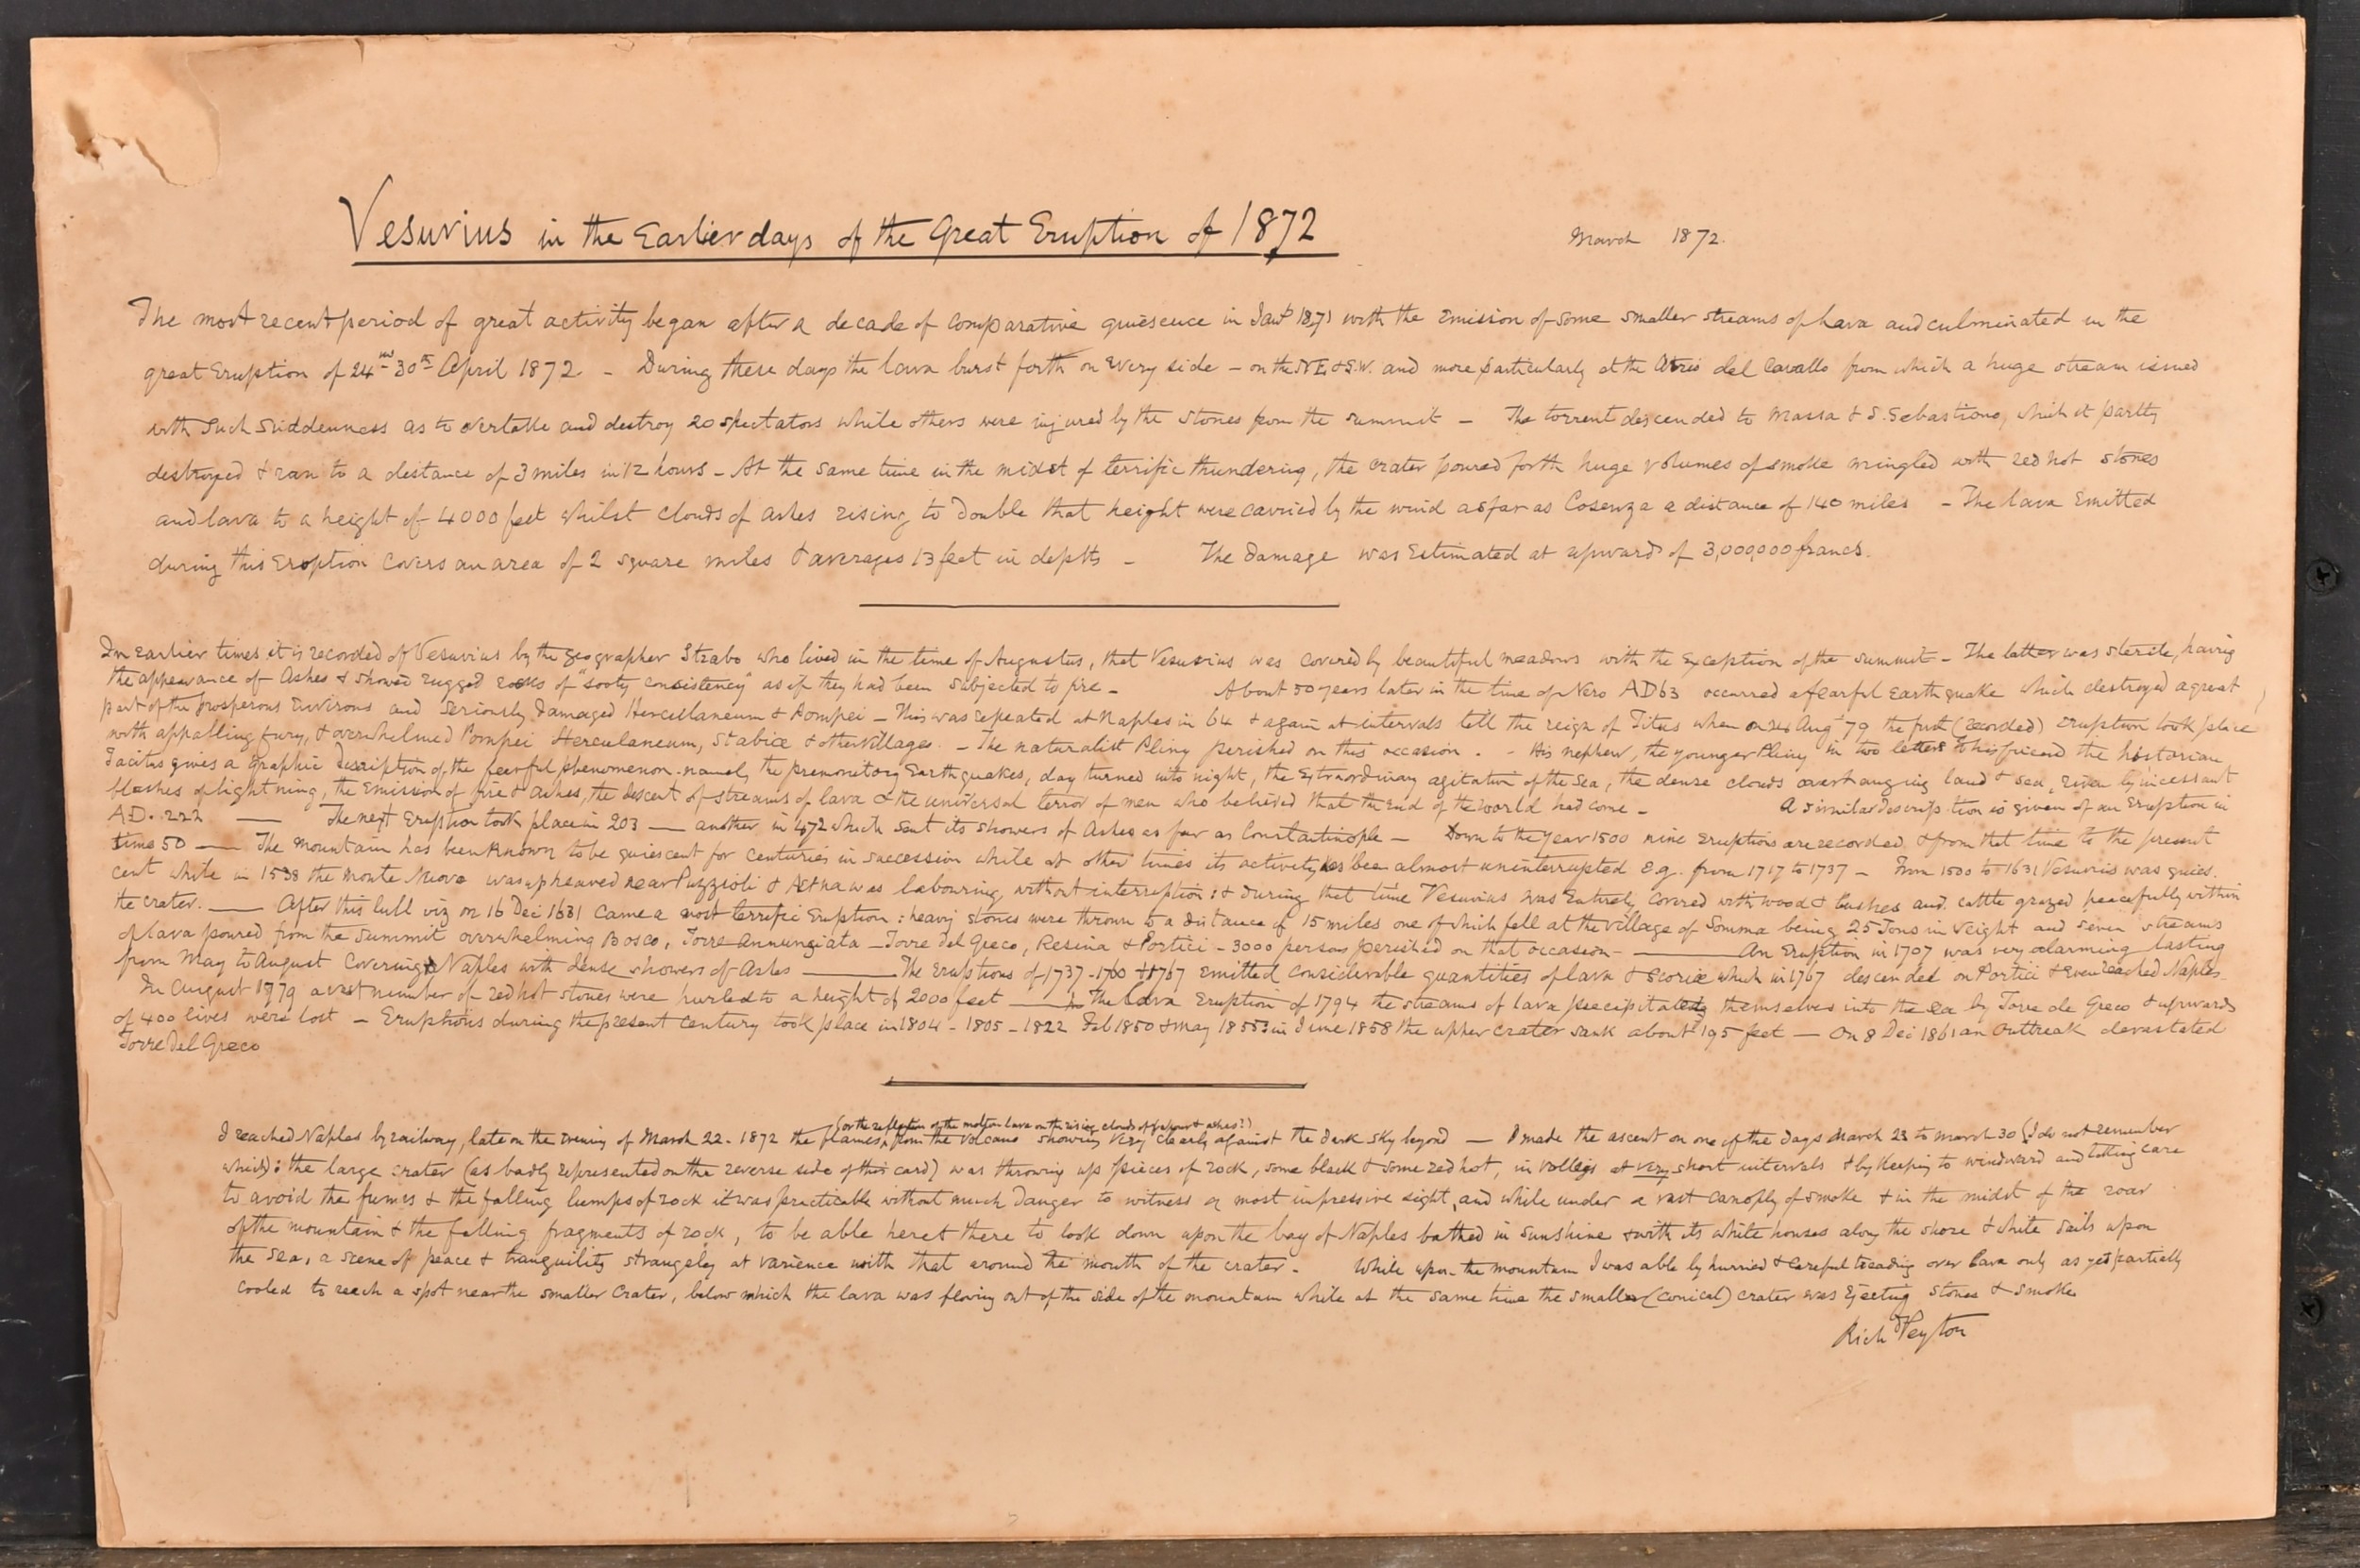 Vesuvius in the Earlier days of the Great Eruption of 1872
March 1872.
The most recent period of great activity began after a decade of comparative quiescence in Jany 1871 with the Emission of some smaller streams of Lava and culminated in the
great Eruption of 24th - 30th April 1872 - During these days the lava burst forth on Every side - on the N.E. & S.W. and more particularly at the Atrio del Cavallo from which a huge stream issued
with such suddenness as to overtake and destroy 20 spectators while others were injured by the stones from the summit - The torrent descended to Massa & S. Sebastiano, which it partly
destroyed & ran to a distance of 3 miles in 12 hours - At the same time in the midst of terrific thundering, the crater poured forth huge volumes of smoke mingled with red hot stones
and lava to a height of 4000 feet whilst clouds of ashes rising to double that height were carried by the wind as far as Cosenza a distance of 140 miles - The lava Emitted
during this Eruption covers an area of 2 square miles & averages 13 feet in depth - The damage was Estimated at upwards of 3,000,000 francs.
In earlier times it is recorded of Vesuvius by the geographer Strabo who lived in the time of Augustus, that Vesuvius was covered by beautiful meadows with the exception of the summit - The latter was sterile, having
the appearance of Ashes & showed rugged rocks of "sooty consistency" as if they had been subjected to fire - About 50 years later in the time of Nero AD 63 occurred a fearful Earthquake which destroyed a great
part of the prosperous Environs and seriously damaged Herculaneum & Pompei - This was repeated at Naples in 64 & again at intervals till the reign of Titus when on 24 Augt 79 the first (recorded) Eruption took place
with appalling fury, & overwhelmed Pompei Herculaneum, Stabiæ & other villages. - The naturalist Pliny perished on this occasion. - His nephew, the younger Pliny in two letters to his friend the historian
Tacitus gives a graphic description of the fearful phenomenon - namely the premonitory Earthquakes, day turned into night, the Extraordinary agitation of the Sea, the dense clouds overhanging land & sea, riven by incessant
flashes of lightning, the Emission of fire & ashes, the descent of streams of lava & the universal terror of men who believed that the End of the World had come - A similar description is given of an Eruption in
AD. 222 — The next Eruption took place in 203 — another in 472 which sent its showers of Ashes as far as Constantinople - Down to the year 1500 nine Eruptions are recorded & from that time to the present
time 50 — The mountain has been known to be quiescent for centuries in succession while at other times its activity has been almost uninterrupted e.g. from 1717 to 1737 - From 1500 to 1631 Vesuvius was quies.
cent while in 1538 the Monte Nuovo was upheaved near Puzzioli & Ætna was labouring without interruption: & during that time Vesuvius was Entirely covered with wood & bushes and cattle grazed peacefully within
the crater. — After this lull viz on 16 Dec 1631 came a most terrific Eruption: heavy stones were thrown to a distance of 15 miles one of which fell at the village of Somma being 25 Tons in Weight and seven streams
of lava poured from the summit overwhelming Bosco, Torre Annunziata - Torre del Greco, Resina & Portici - 3000 persons perished on that occasion - — An Eruption in 1707 was very alarming lasting
from May to August covering Naples with dense showers of Ashes — The Eruptions of 1737 - 1760 & 1767 Emitted considerable quantities of lava & scoriæ which in 1767 descended on Portici & even reached Naples
In August 1779 a vast number of red hot stones were hurled to a height of 2000 feet — In the Lava Eruption of 1794 the streams of lava precipitated themselves into the sea by Torre de Greco & upwards
of 400 lives were lost - Eruptions during the present century took place in 1804 - 1805 - 1822 Feb 1850 & May 1855: in June 1858 the upper crater sank about 195 feet — On 8 Dec 1861 an outbreak devastated
Torre Del Greco
(or the reflection of the molten lava on the rising clouds of vapour & ashes?)
I reached Naples by railway, late on the Evening of March 22. 1872 the flames from the Volcano showing very clearly against the dark sky beyond — I made the ascent on one of the days March 23 to March 30 (I do not remember
which): the large crater (as badly represented on the reverse side of this card) was throwing up pieces of rock, some black & some red hot, in volleys at very short intervals & by keeping to windward and taking care
to avoid the fumes & the falling lumps of rock it was practicable without much danger to witness a most impressive sight, and while under a vast canopy of smoke & in the midst of the roar
of the mountain & the falling fragments of rock, to be able here & there to look down upon the bay of Naples bathed in sunshine & with its white houses along the shore & white sails upon
the sea, a scene of peace & tranquility strangely at varience with that around the mouth of the crater. While upon the mountain I was able by hurried & careful treading over lava only as yet partially
cooled to reach a spot near the smaller crater, below which the lava was flowing out of the side of the mountain while at the same time the smaller (conical) crater was Ejecting stones & smoke
Richd Peyton